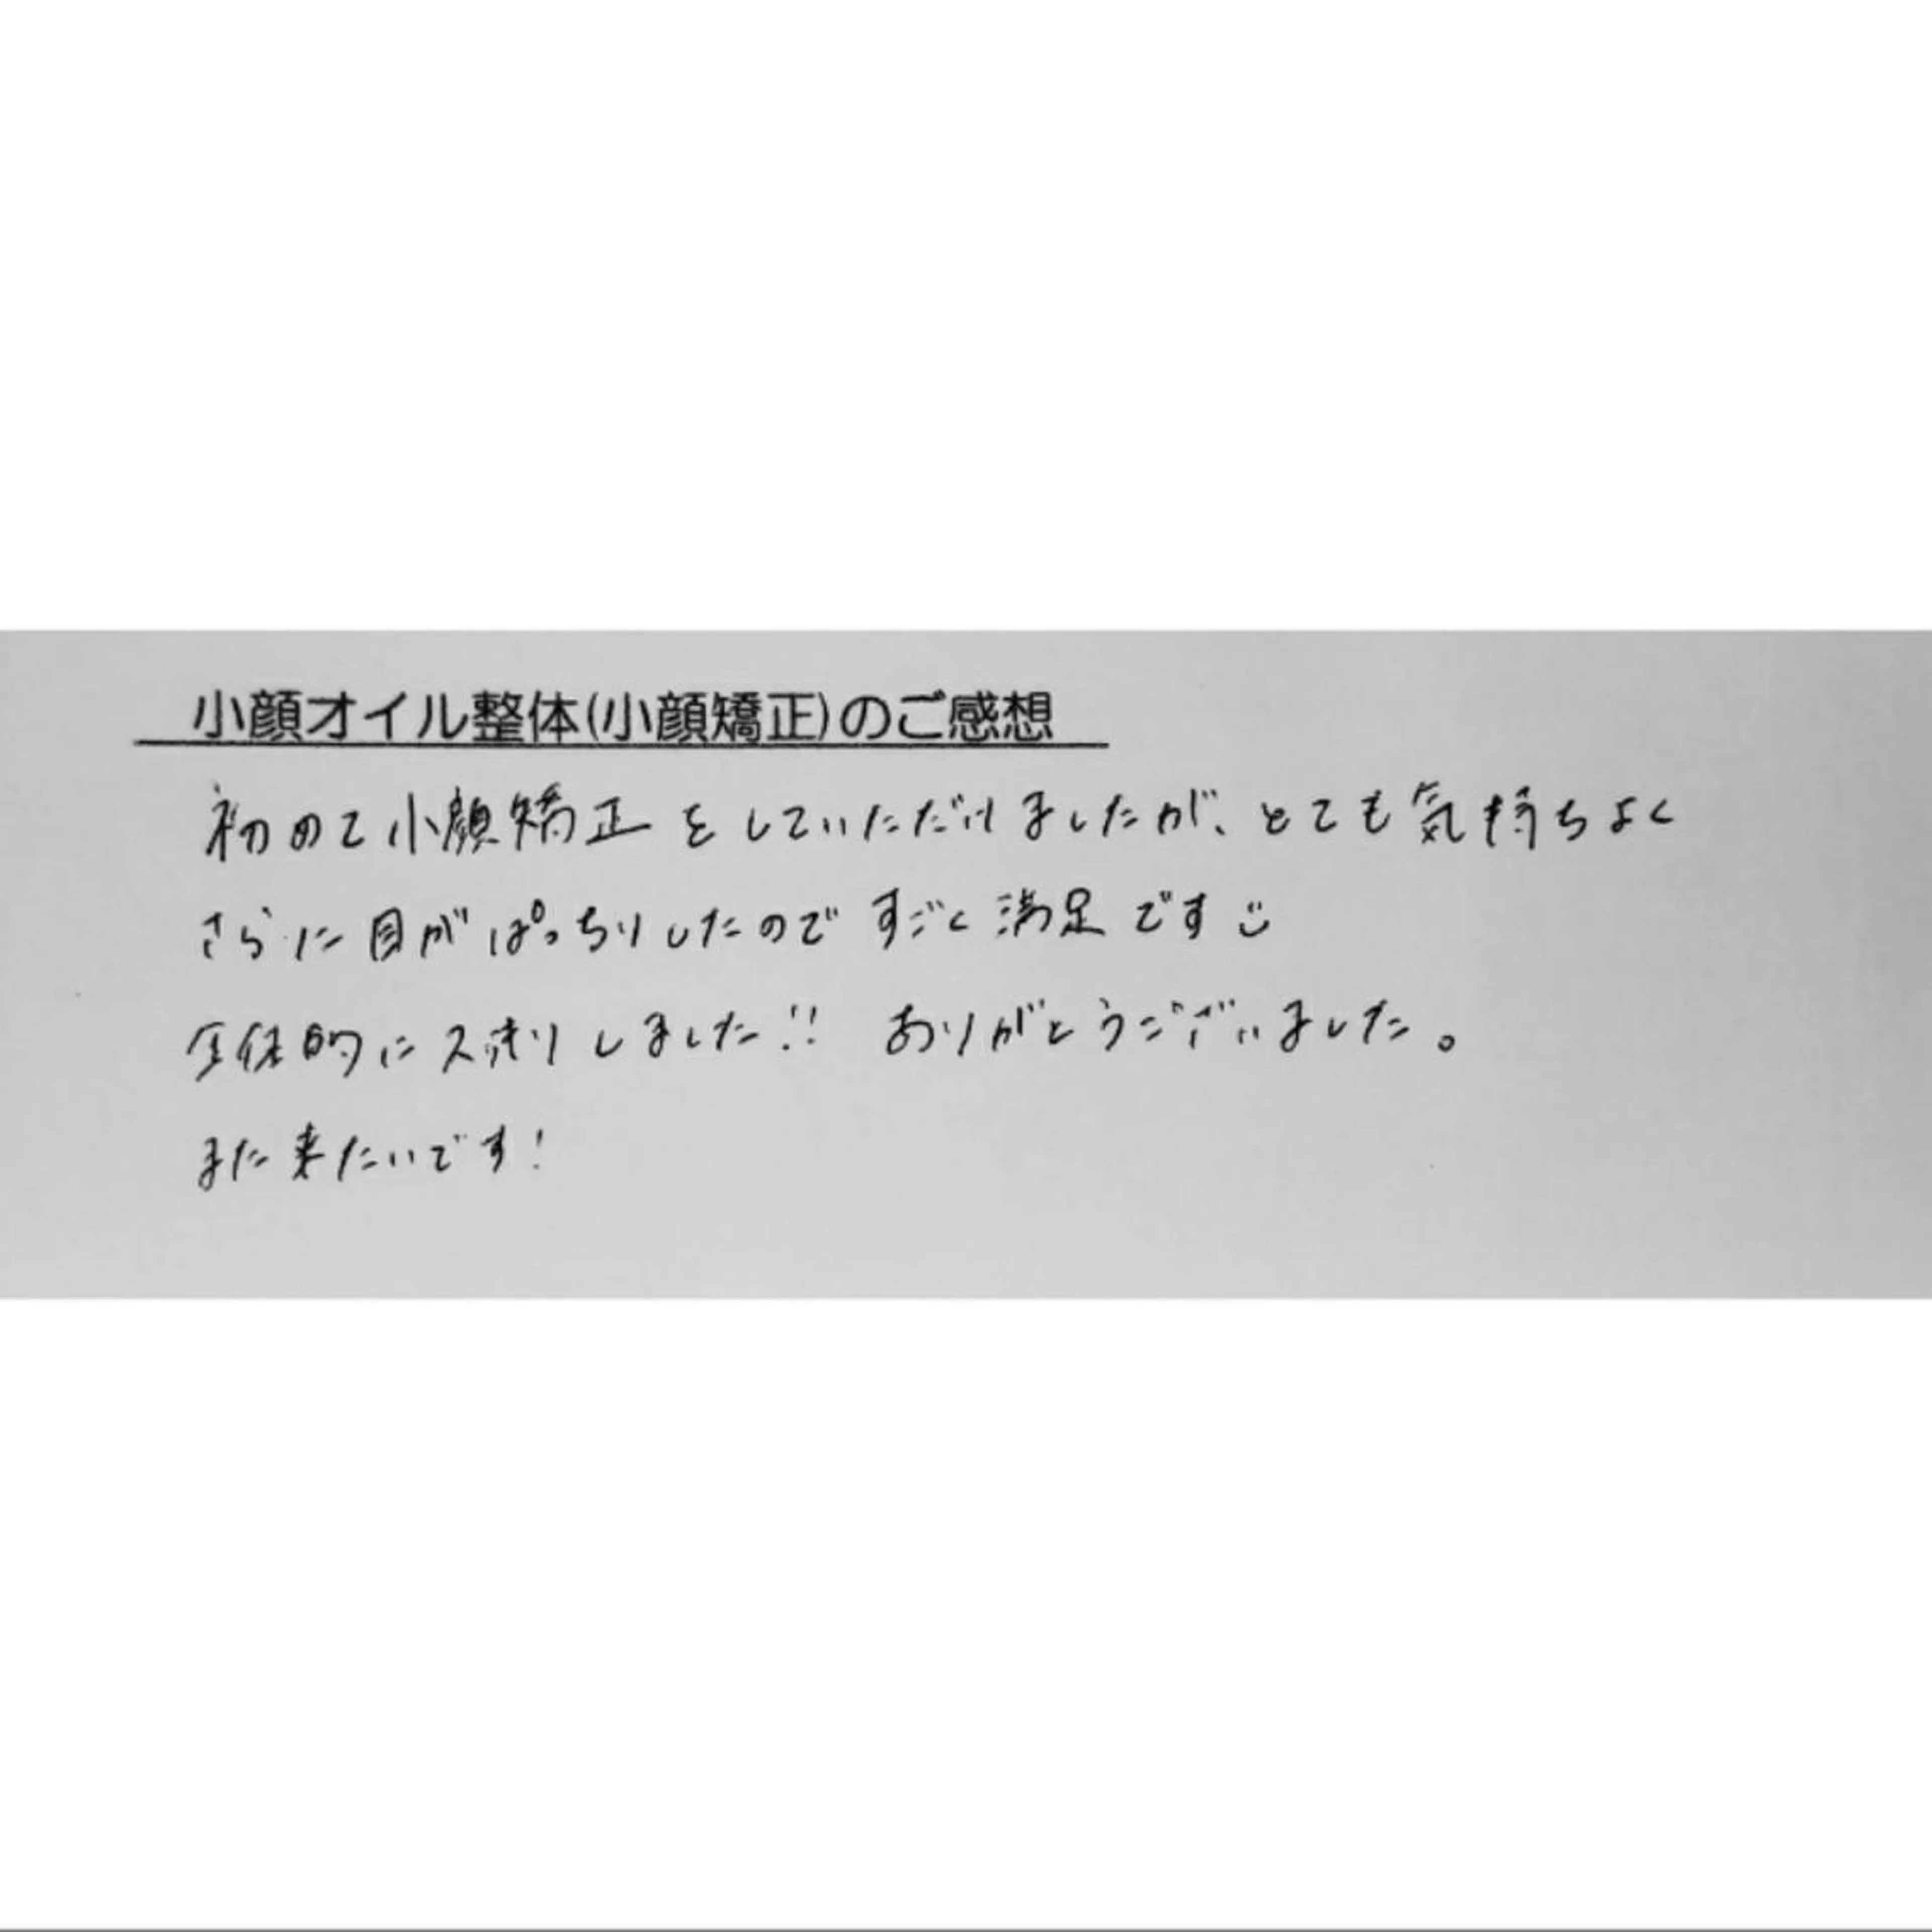 小顔オイル整体(小顔矯正)のご感想
初めて小顔矯正をしていただけましたが、とても気持ちよく
さらに目がぱっちりしたので すごく満足です
全体的にスッキリしました!! ありがとうございました。
また来たいです!